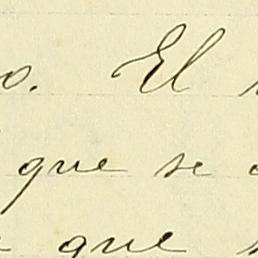 o. El
que se
que